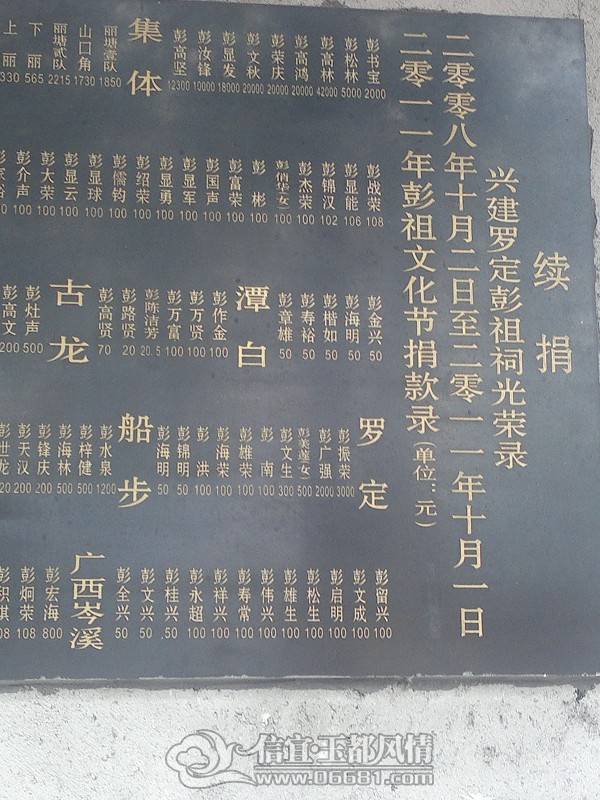 续捐
兴建罗定彭祖祠光荣录
二零零八年十月二日至二零一一年十月一日
二零一一年彭祖文化节捐款录(单位:元)
彭书宝 2000
彭松林 5000
彭高林 42000
彭高鸿 20000
彭荣庆 20000
彭文秋 20000
彭显发 18000
彭汝锋 10000
彭高坚 12300
集体
丽塘壹队 1850
山口角 1730
丽塘贰队 2215
下丽 565
上丽 330
彭战荣 108
彭显能 106
彭锦汉 102
彭杰荣 100
彭俏华(女) 100
彭彬 100
彭富荣 100
彭国声 100
彭显军 100
彭显勇 100
彭绍荣 100
彭儒钧 100
彭显球 100
彭显云 100
彭大荣 100
彭介声 100
彭金兴 50
彭海明 50
彭楷如 50
彭寿裕 50
彭章雄 50
潭白
彭作金 100
彭万贤 100
彭万富 100
彭陈洁芳 20.5
彭路贤 20
彭高贤 70
古龙
彭灶声 500
彭高文 200
罗定
彭振荣 3000
彭广强 2000
彭美莲(女) 500
彭文生 300
彭南 100
彭雄荣 100
彭海荣 100
彭洪 100
彭锦明 50
彭海明 50
船步
彭水泉 1200
彭梓健 500
彭海林 500
彭锋庆 200
彭天汉 200
彭世龙 20
彭留兴 100
彭文成 100
彭启明 100
彭松生 100
彭雄生 100
彭伟兴 100
彭寿常 100
彭祥兴 100
彭永超 100
彭桂兴 .50
彭文兴 50
彭全兴 50
广西岑溪
彭宏海 800
彭炯荣 108
彭积祺 08
信宜·玉都风情
www.06681.com